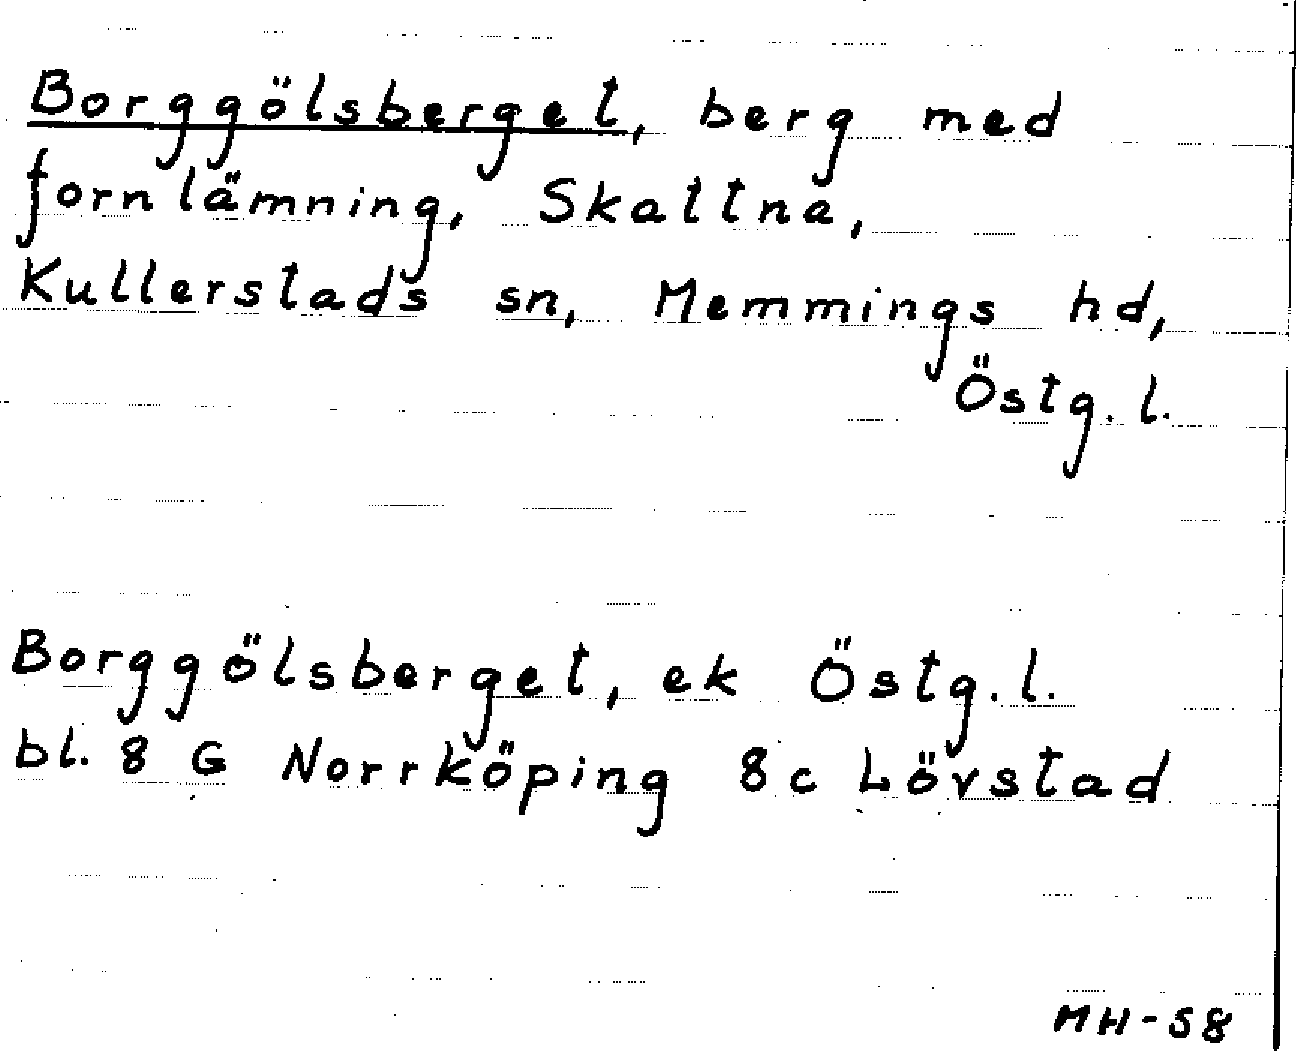 Borggölsberget, berg med
fornlämning, Skattna,
Kullerstads sn, Memmings hd,
Östg. l.
Borggölsberget, ek Östg. l.
bl. 8 G Norrköping 8c Lövstad
MH-58